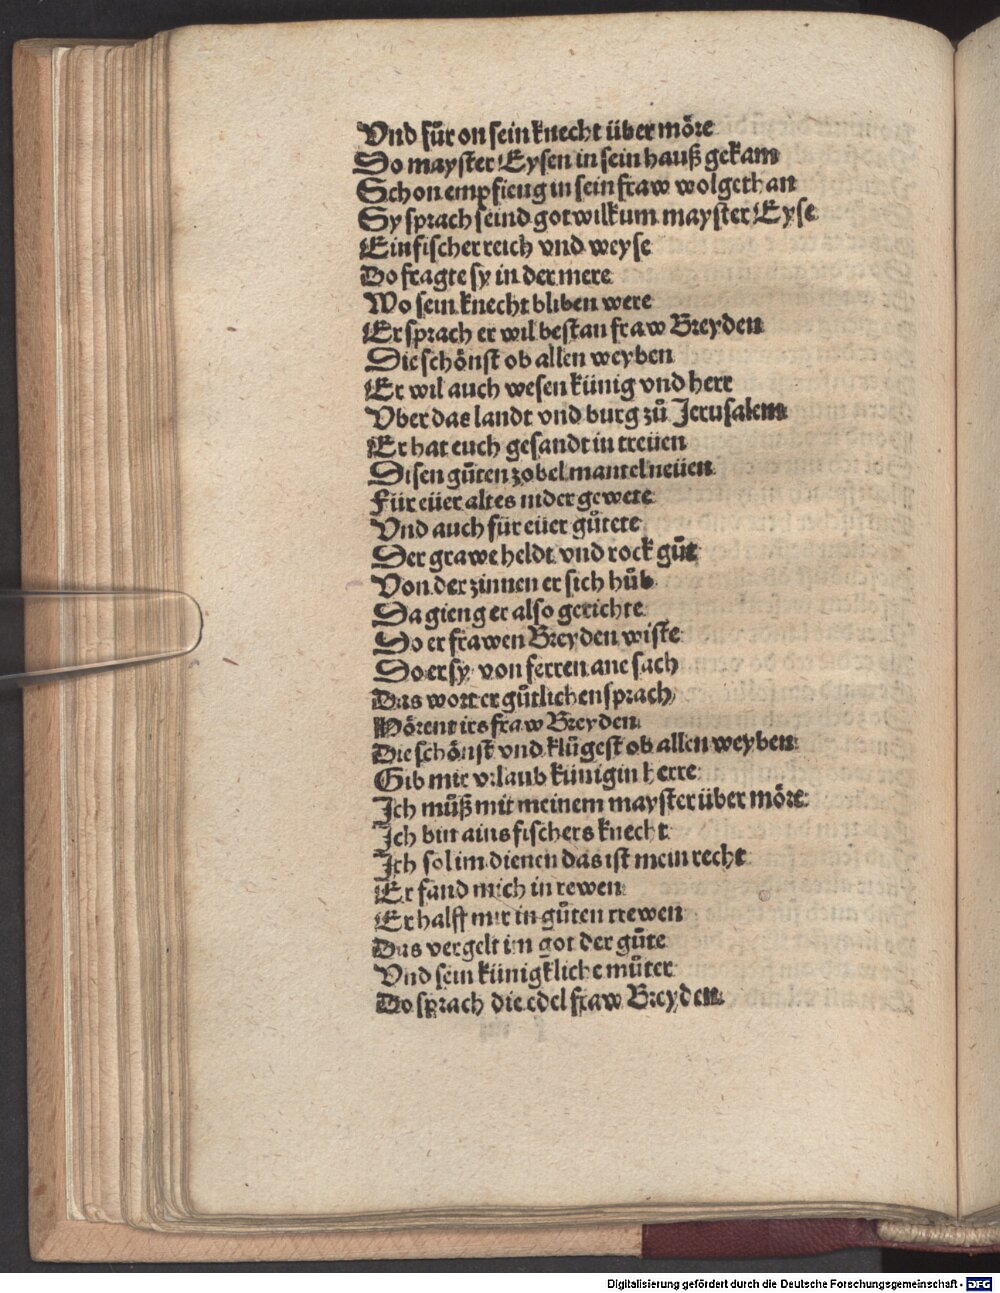 Vnd fůr on sein knecht über möre
Do mayster Eysen in sein hauß gekam
Schon empfieng in sein fraw wolgethan
Sy sprach seind got wilkum mayster Eyse
Ein fischer reich vnd weyse
Do fragte sy in der mere
Wo sein knecht bliben were
Er sprach er wil bestan fraw Breyden
Die schönst ob allen weyben
Er wil auch wesen künig vnd herr
Vber das landt vnd burg zů Jerusalem
Er hat euch gesandt in treüen
Disen gůten zobel mantel neüen
Für eüer altes nider gewete
Vnd auch für eüer gůtete
Der grawe heldt vnd rock gůt
Von der zinnen er sich hůb
Da gieng er also gerichte
Do er frawen Breyden wiste
Do er sy von ferren ane sach
Das wort er gůtlichen sprach
Hörent irs fraw Breyden
Die schönst vnd klůgest ob allen weyben
Gib mir vrlaub künigin herre
Ich můß mit meinem mayster über möre
Ich bin ains fischers knecht
Ich sol im dienen das ist mein recht
Er fand mich in rewen
Er halff mir in gůten trewen
Das vergelt im got der gůte
Vnd sein künigkliche můter
Do sprach die edel fraw Breyden
Digitalisierung gefördert durch die Deutsche Forschungsgemeinschaft - DFG